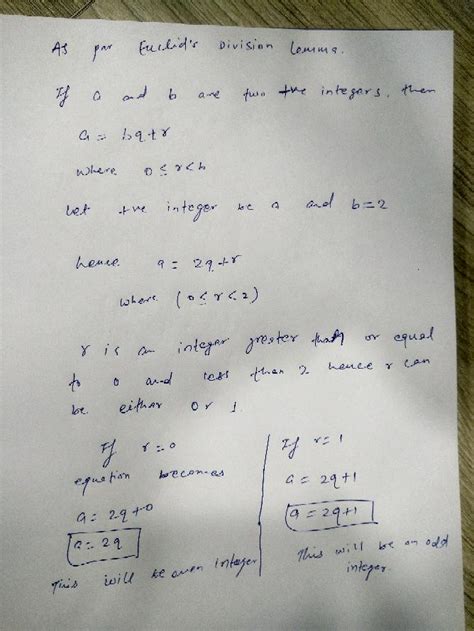 As per Euclid's Division Lemma.
If a and b are two +ve integers, then
a = bq+r
where 0 ≤ r < b
Let +ve integer be a and b=2
hence a = 2q+r
where (0 ≤ r < 2)
r is an integer greater than or equal
to 0 and less than 2 hence r can
be either 0 or 1.
If r=0
equation becomes
a = 2q+0
a = 2q
This will be even integer
If r=1
a = 2q+1
a = 2q+1
This will be an odd
integer.